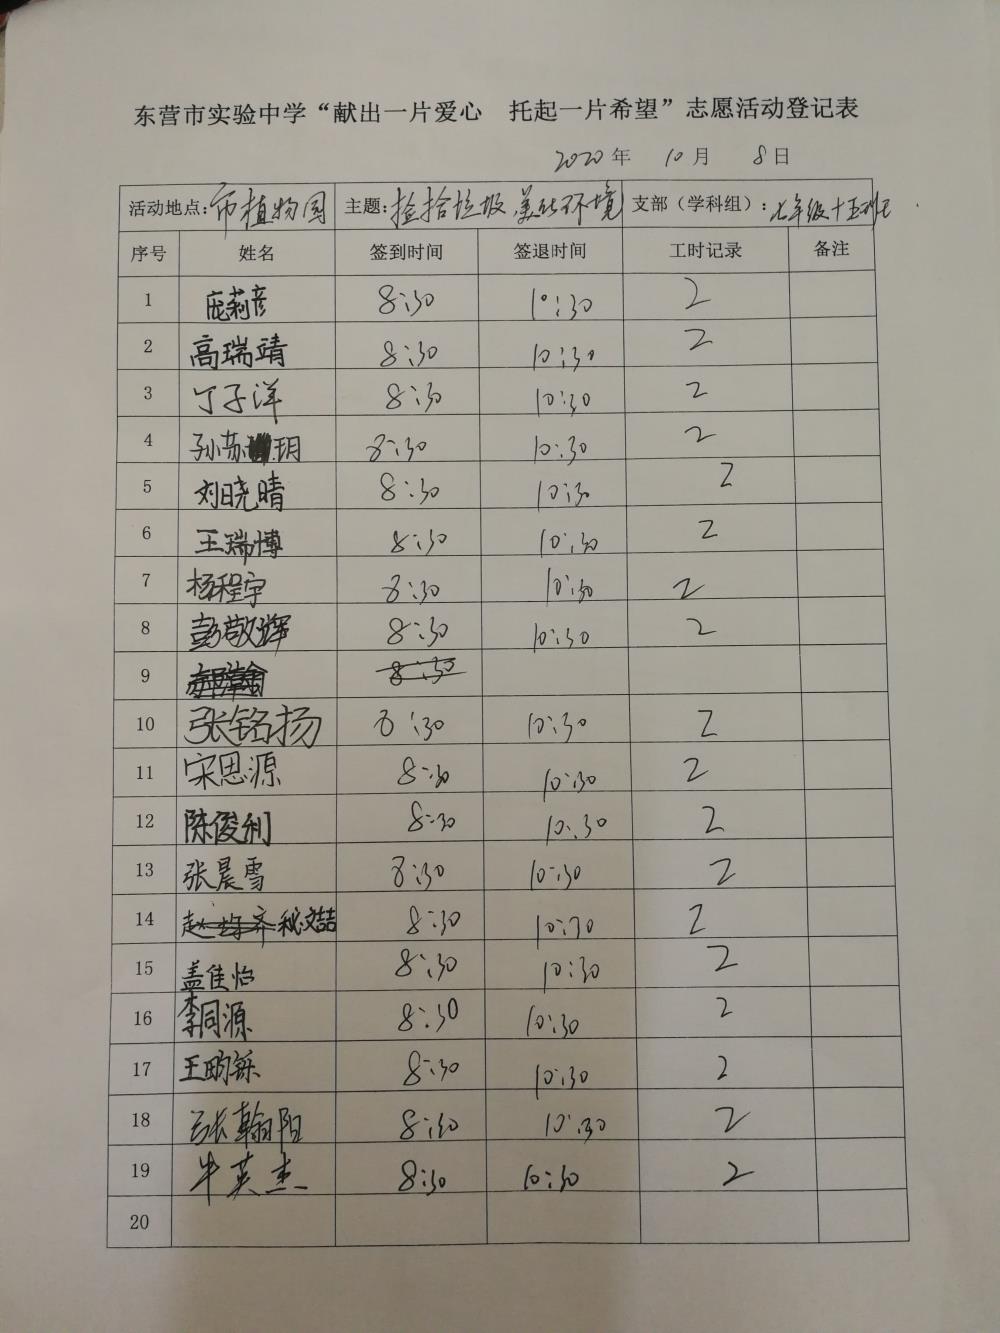 东营市实验中学“献出一片爱心 托起一片希望”志愿活动登记表
2020年 10月 8日
活动地点:市植物园 主题:捡拾垃圾 美化环境 支部（学科组）:七年级十五班
序号 姓名 签到时间 签退时间 工时记录 备注
1 庞莉彦 8:30 10:30 2
2 高瑞靖 8:30 10:30 2
3 丁子洋 8:30 10:30 2
4 孙苏玥 8:30 10:30 2
5 刘晓晴 8:30 10:30 2
6 王瑞博 8:30 10:30 2
7 杨程宇 8:30 10:30 2
8 彭敬辉 8:30 10:30 2
9 8:30
10 张铭扬 8:30 10:30 2
11 宋思源 8:30 10:30 2
12 陈俊利 8:30 10:30 2
13 张晨雪 8:30 10:30 2
14 秘文喆 8:30 10:30 2
15 盖佳怡 8:30 10:30 2
16 李同源 8:30 10:30 2
17 王昀铄 8:30 10:30 2
18 张翰阳 8:30 10:30 2
19 牛英杰 8:30 10:30 2
20